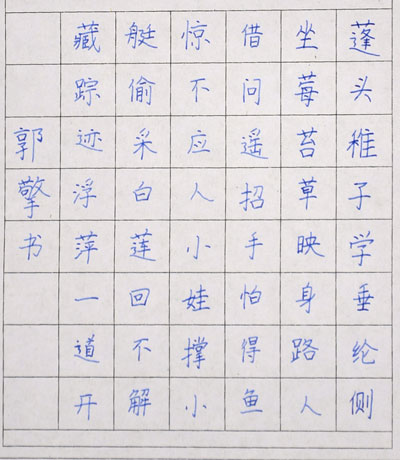 蓬头稚子学垂纶侧
坐莓苔草映身路人
借问遥招手怕得鱼
惊不应人小娃撑小
艇偷采白莲回不解
藏踪迹浮萍一道开
郭擎书